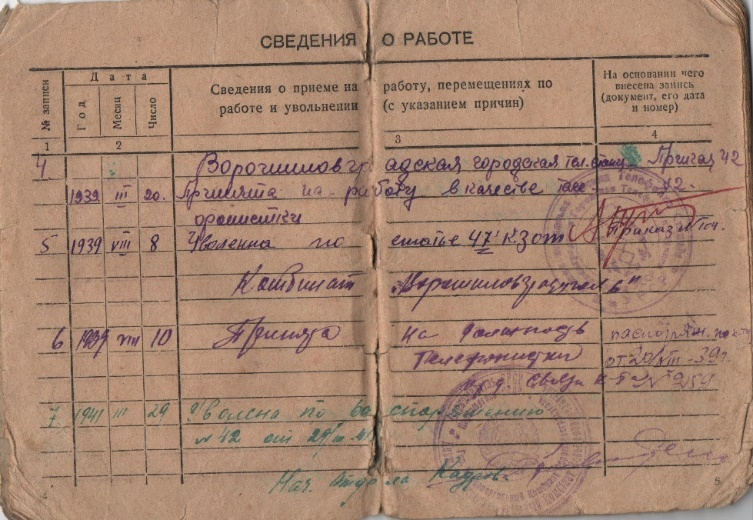 СВЕДЕНИЯ О РАБОТЕ
№ записи
Дата
Год
Месяц
Число
Сведения о приеме на работу, перемещениях по
работе и увольнении (с указанием причин)
На основании чего
внесена запись
(документ, его дата
и номер)
1 2 3 4
4 Ворошиловградская городская тел. станц.
1939 III 20. Принята на работу в качестве теле-
фонистки
5 1939 VIII 8 Уволенна по статье 47 КЗот Приказ №
Комбинат "Ворошиловградуголь"
6 1939 VIII 10 Принята на должность
Телефонистки от 20/VIII-39г.
связи К-та №
7 1941 III 29 Уволена по распоряжению
№ 12 от 29/III-41
Нач. отдела Кадров
5